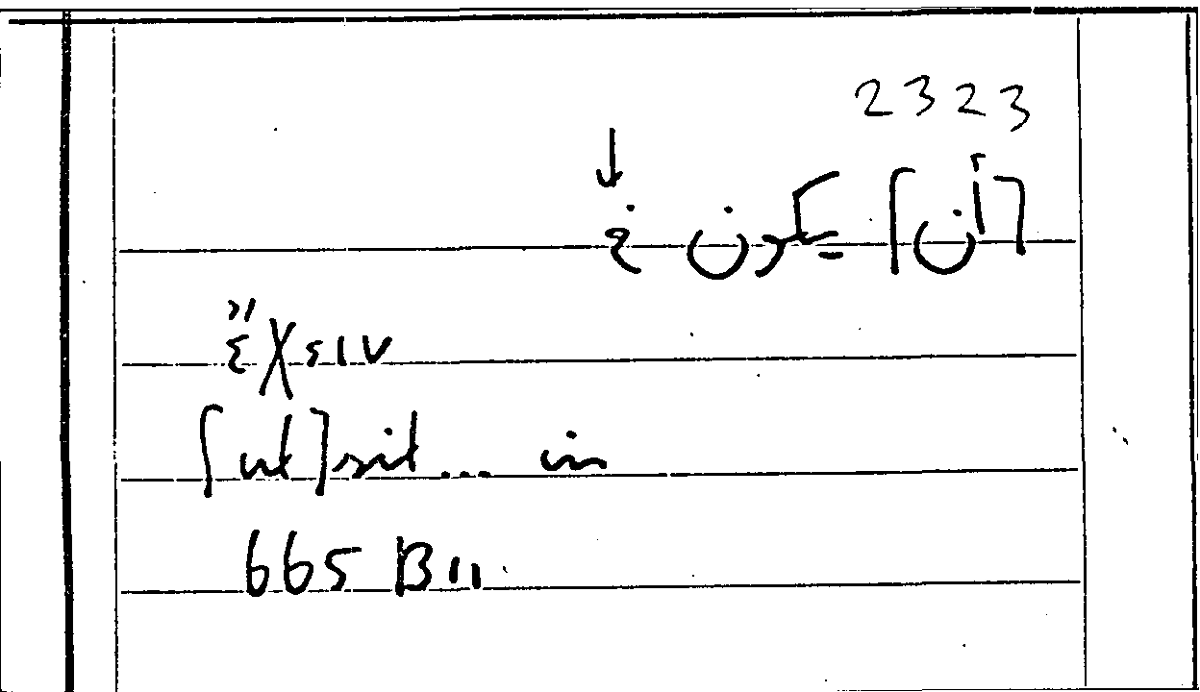 2323
↓
[أن] يكون في
ἔχειν
[ut] sit ... in
665 B11